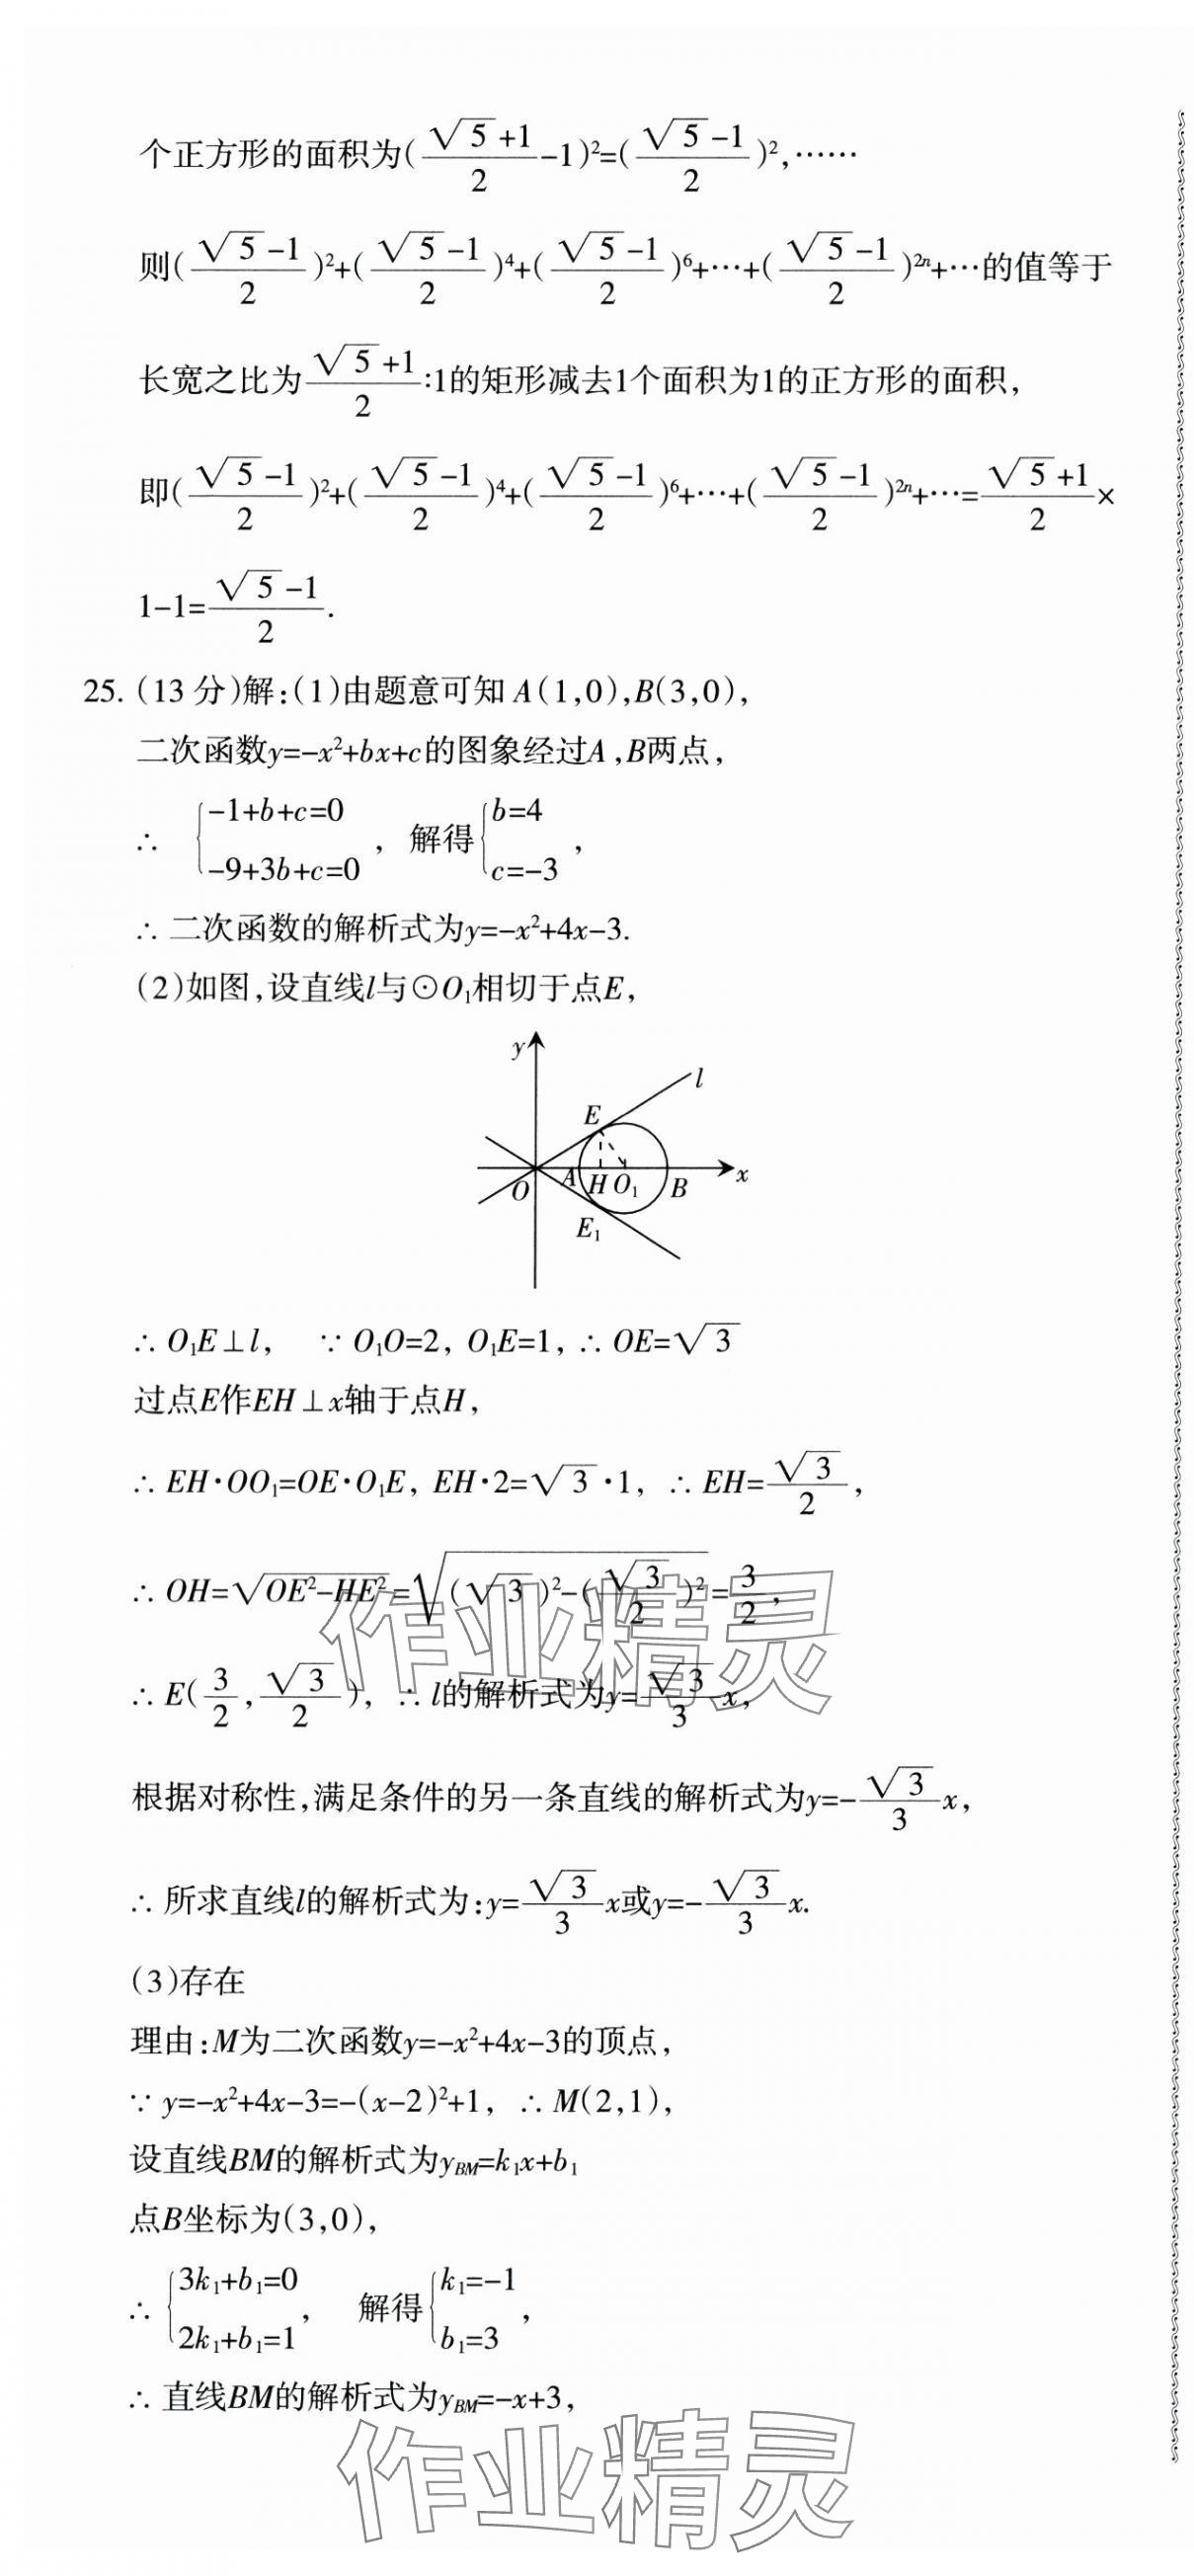 个正方形的面积为((√5+1)/2-1)²=((√5-1)/2)²,……
则((√5-1)/2)²+((√5-1)/2)⁴+((√5-1)/2)⁶+…+((√5-1)/2)²ⁿ+…的值等于
长宽之比为(√5+1)/2:1的矩形减去1个面积为1的正方形的面积,
即((√5-1)/2)²+((√5-1)/2)⁴+((√5-1)/2)⁶+…+((√5-1)/2)²ⁿ+…=(√5+1)/2×
1-1=(√5-1)/2.
25.(13分)解:(1)由题意可知A(1,0),B(3,0),
二次函数y=-x²+bx+c的图象经过A,B两点,
∴ {-1+b+c=0
-9+3b+c=0, 解得{b=4
c=-3,
∴二次函数的解析式为y=-x²+4x-3.
(2)如图,设直线l与⊙O₁相切于点E,
y
l
E
O A H O₁ B x
E₁
∴ O₁E⊥l, ∵ O₁O=2, O₁E=1, ∴ OE=√3
过点E作EH⊥x轴于点H,
∴ EH·OO₁=OE·O₁E, EH·2=√3·1, ∴ EH=√3/2,
∴ OH=√(OE²-HE²)=√((√3)²-(√3/2)²)=3/2,
∴ E(3/2,√3/2), ∴ l的解析式为y=√3/3x,
根据对称性,满足条件的另一条直线的解析式为y=-√3/3x,
∴所求直线l的解析式为:y=√3/3x或y=-√3/3x.
(3)存在
理由:M为二次函数y=-x²+4x-3的顶点,
∵ y=-x²+4x-3=-(x-2)²+1, ∴ M(2,1),
设直线BM的解析式为yBM=k₁x+b₁
点B坐标为(3,0),
∴ {3k₁+b₁=0
2k₁+b₁=1, 解得{k₁=-1
b₁=3,
∴直线BM的解析式为yBM=-x+3,
作业精灵
作业精灵